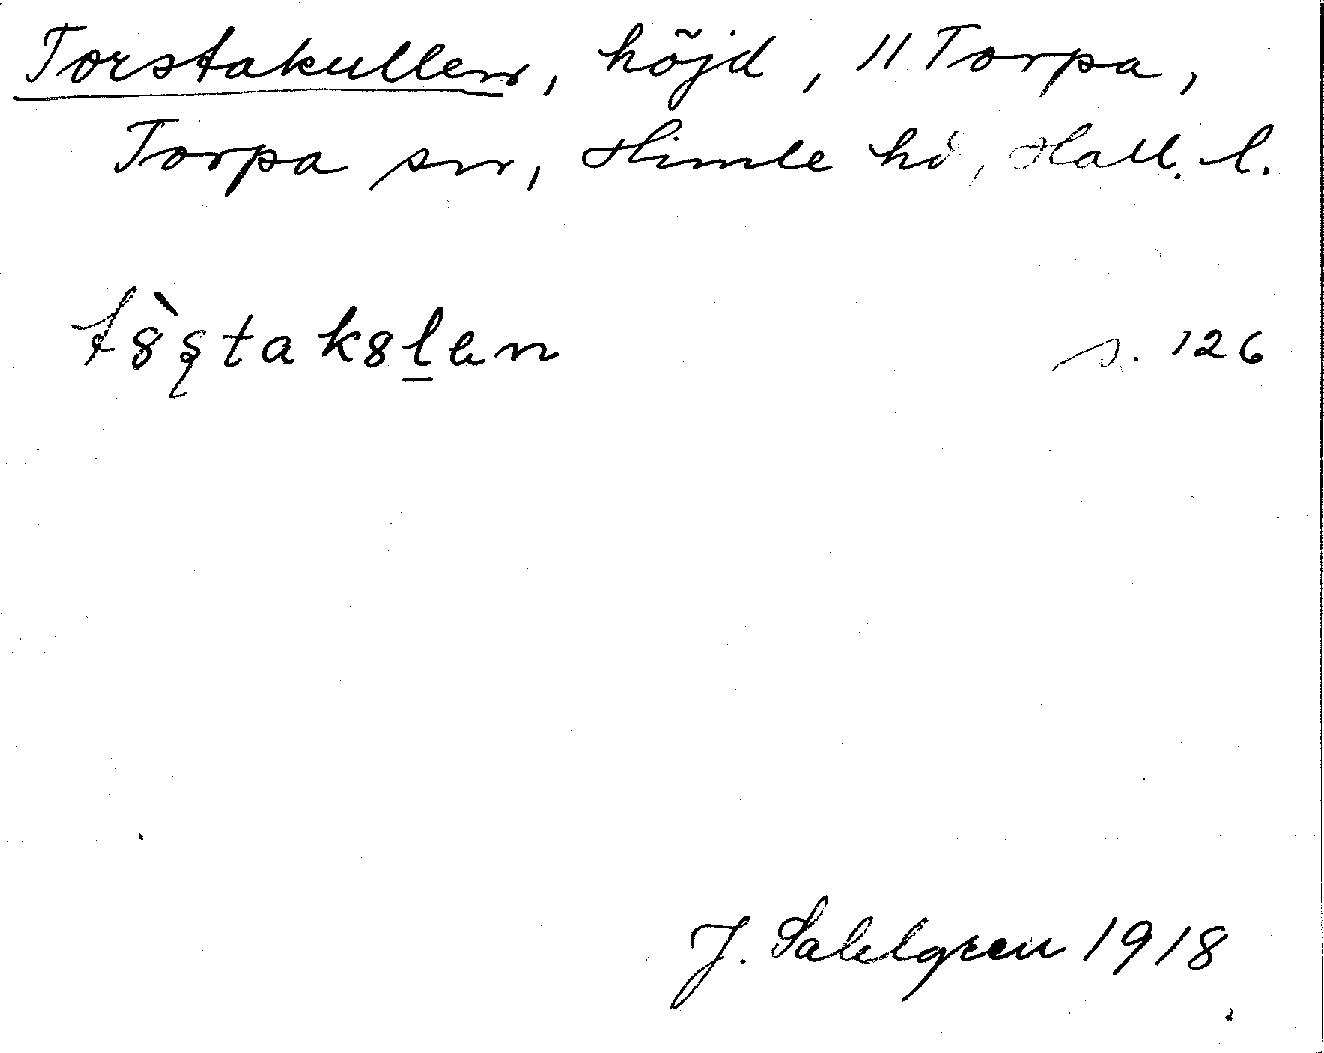 Torstakullen, höjd, 11 Torpa,
Torpa sn, Himle hd, Hall. l.
t8̀s̨tak8l̲en s. 126
J. Sahlgren 1918